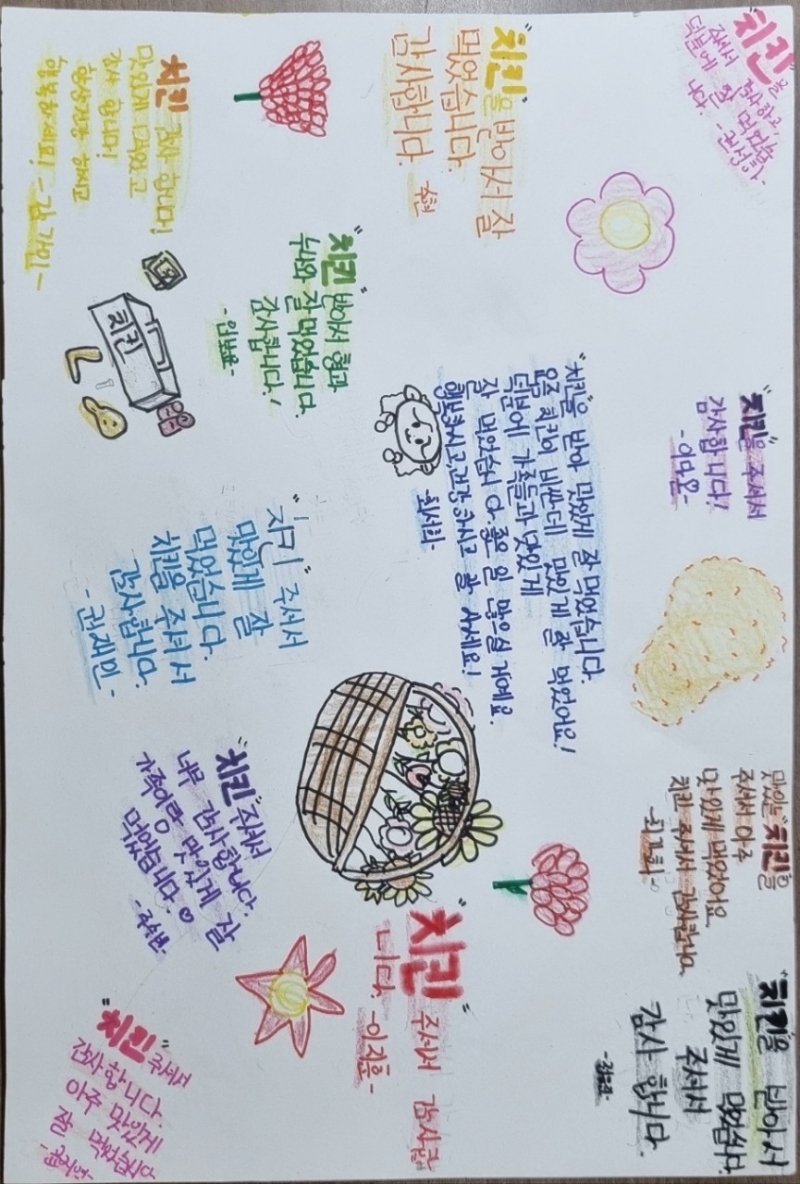 "치킨"을
주셔서
감사하고,
덕분에 잘
"치킨"을 주셔서
감사합니다!
-이다온-
맛있는 "치킨"을
주셔서 아주
맛있게 먹었어요
치킨 주셔서 감사합니다.
"치킨"을 받아서
맛있게 먹었습니다.
주셔서
감사 합니다.
"치킨"을 받아서 잘
먹었습니다.
감사합니다.
"치킨"을 받아 맛있게 잘 먹었습니다.
요즘 치킨이 비싼데 맛있게 잘 먹었어요!
덕분에 가족들과 맛있게
잘 먹었습니다. 좋은 일 많으실 거예요.
행복하시고, 건강하시고 잘 사세요!
"치킨" 주셔서 감사합
니다. -이지훈-
"치킨" 받아서 형과
누나와 잘 먹었습니다.
감사합니다!
"치킨" 주셔서
맛있게 잘
먹었습니다.
치킨을 주셔서
감사합니다.
-권재민-
"치킨" 주셔서
너무 감사합니다.
가족이랑 맛있게 잘
먹었습니다.
치킨 감사 합니다!
맛있게 먹었고
감사 합니다!
항상 건강 하시고
행복하세요!
치킨
"치킨" 주셔서
감사합니다.
아주 맛있게
잘 먹었습니다